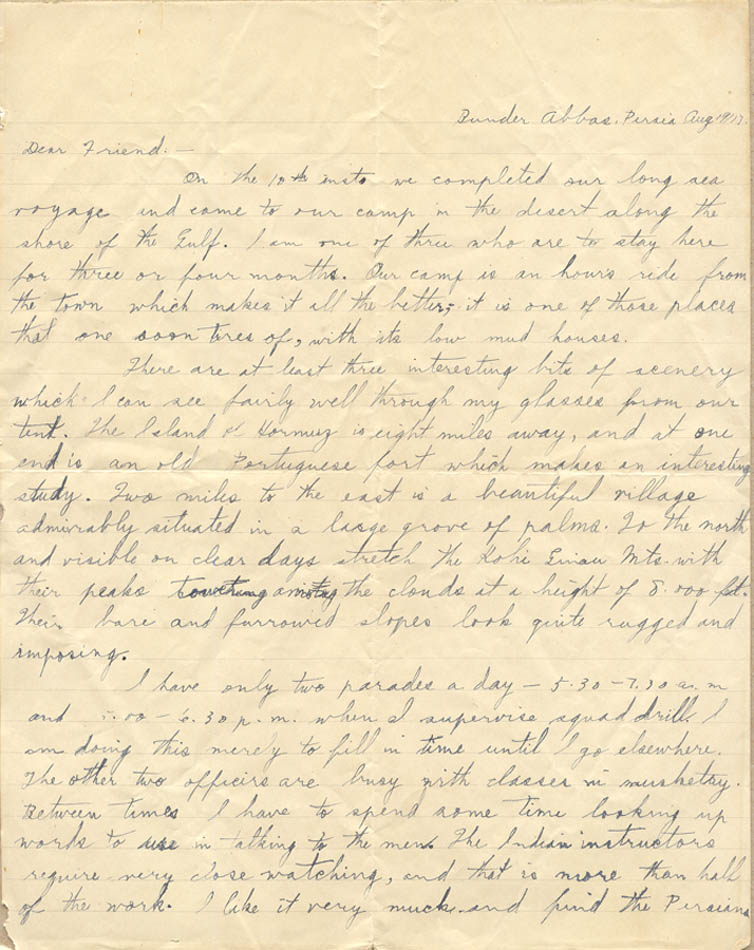 Bunder Abbas, Persia Aug 19/17.
Dear Friend. —
On the 10th insto we completed our long sea
voyage and come to our camp in the desert along the
shore of the Gulf. I am one of three who are to stay here
for three or four months. Our camp is an hours ride from
the town which makes it all the better; it is one of those places
that one soon tires of, with its low mud houses.
There are at least three interesting bits of scenery
which I can see fairly well through my glasses from our
tent. The Island of Hormuz is eight miles away, and at one
end is an old Portuguese fort which makes an interesting
study. Two miles to the east is a beautiful village
admirably situated in a large grove of palms. To the north
and visible on clear days stretch the Kohi Ginau Mts. with
their peaks towering amongst the clouds at a height of 8.000 ft.
Their bare and furrowed slopes look quite rugged and
imposing.
I have only two parades a day — 5.30 — 7.30 a.m
and 5.00 — 6.30 p.m. when I supervise squad drill. I
am doing this merely to fill in time until I go elsewhere.
The other two officers are busy with classes in musketry.
Between times I have to spend some time looking up
words to use in talking to the men. The Indian instructors
require very close watching, and that is more than half
of the work. I like it very much and find the Persians